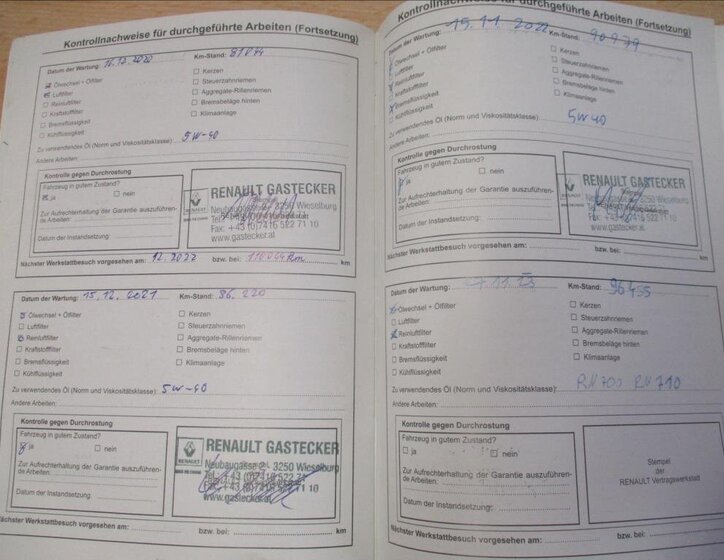 Kontrollnachweise für durchgeführte Arbeiten (Fortsetzung)
Datum der Wartung: 16.12.2020 Km-Stand: 81044
Ölwechsel + Ölfilter
Luftfilter
Reinluftfilter
Kraftstofffilter
Bremsflüssigkeit
Kühlflüssigkeit
Kerzen
Steuerzahnriemen
Aggregate-Rillenriemen
Bremsbeläge hinten
Klimaanlage
Zu verwendendes Öl (Norm und Viskositätsklasse): 5W-40
Andere Arbeiten:
Kontrolle gegen Durchrostung
Fahrzeug in gutem Zustand?
ja nein
Zur Aufrechterhaltung der Garantie auszuführen-
de Arbeiten:
Datum der Instandsetzung:
RENAULT
RENAULT GASTECKER
Neubaugasse 2, 3250 Wieselburg
Fax: +43 (0)7416 522 71 10
www.gastecker.at
Nächster Werkstattbesuch vorgesehen am: 12.2022 bzw. bei: 110044 Km km
Datum der Wartung: 15.12.2021 Km-Stand: 86.220
Ölwechsel + Ölfilter
Luftfilter
Reinluftfilter
Kraftstofffilter
Bremsflüssigkeit
Kühlflüssigkeit
Kerzen
Steuerzahnriemen
Aggregate-Rillenriemen
Bremsbeläge hinten
Klimaanlage
Zu verwendendes Öl (Norm und Viskositätsklasse): 5W-40
Andere Arbeiten:
Kontrolle gegen Durchrostung
Fahrzeug in gutem Zustand?
ja nein
Zur Aufrechterhaltung der Garantie auszuführen-
de Arbeiten:
Datum der Instandsetzung:
RENAULT
RENAULT GASTECKER
Neubaugasse 2, 3250 Wieselburg
www.gastecker.at
Nächster Werkstattbesuch vorgesehen am: bzw. bei: km
Kontrollnachweise für durchgeführte Arbeiten (Fortsetzung)
Datum der Wartung: 15.11.2022 Km-Stand: 90979
Ölwechsel + Ölfilter
Luftfilter
Reinluftfilter
Kraftstofffilter
Bremsflüssigkeit
Kühlflüssigkeit
Kerzen
Steuerzahnriemen
Aggregate-Rillenriemen
Bremsbeläge hinten
Klimaanlage
Zu verwendendes Öl (Norm und Viskositätsklasse): 5W40
Andere Arbeiten:
Kontrolle gegen Durchrostung
Fahrzeug in gutem Zustand?
ja nein
Zur Aufrechterhaltung der Garantie auszuführen-
de Arbeiten:
Datum der Instandsetzung:
RENAULT
RENAULT GASTECKER
Fax: +43 (0)7416 522 71 10
www.gastecker.at
Nächster Werkstattbesuch vorgesehen am: bzw. bei: km
Datum der Wartung: 11.23 Km-Stand: 96455
Ölwechsel + Ölfilter
Luftfilter
Reinluftfilter
Kraftstofffilter
Bremsflüssigkeit
Kühlflüssigkeit
Kerzen
Steuerzahnriemen
Aggregate-Rillenriemen
Bremsbeläge hinten
Klimaanlage
Zu verwendendes Öl (Norm und Viskositätsklasse): RN700 RN710
Andere Arbeiten:
Kontrolle gegen Durchrostung
Fahrzeug in gutem Zustand?
ja nein
Zur Aufrechterhaltung der Garantie auszuführen-
de Arbeiten:
Datum der Instandsetzung:
Stempel
der
RENAULT Vertragswerkstatt
Nächster Werkstattbesuch vorgesehen am: bzw. bei: km